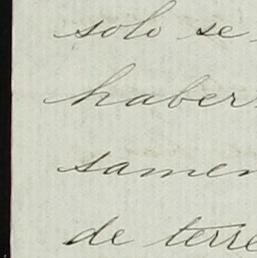 solo se
haber
samen
de terre